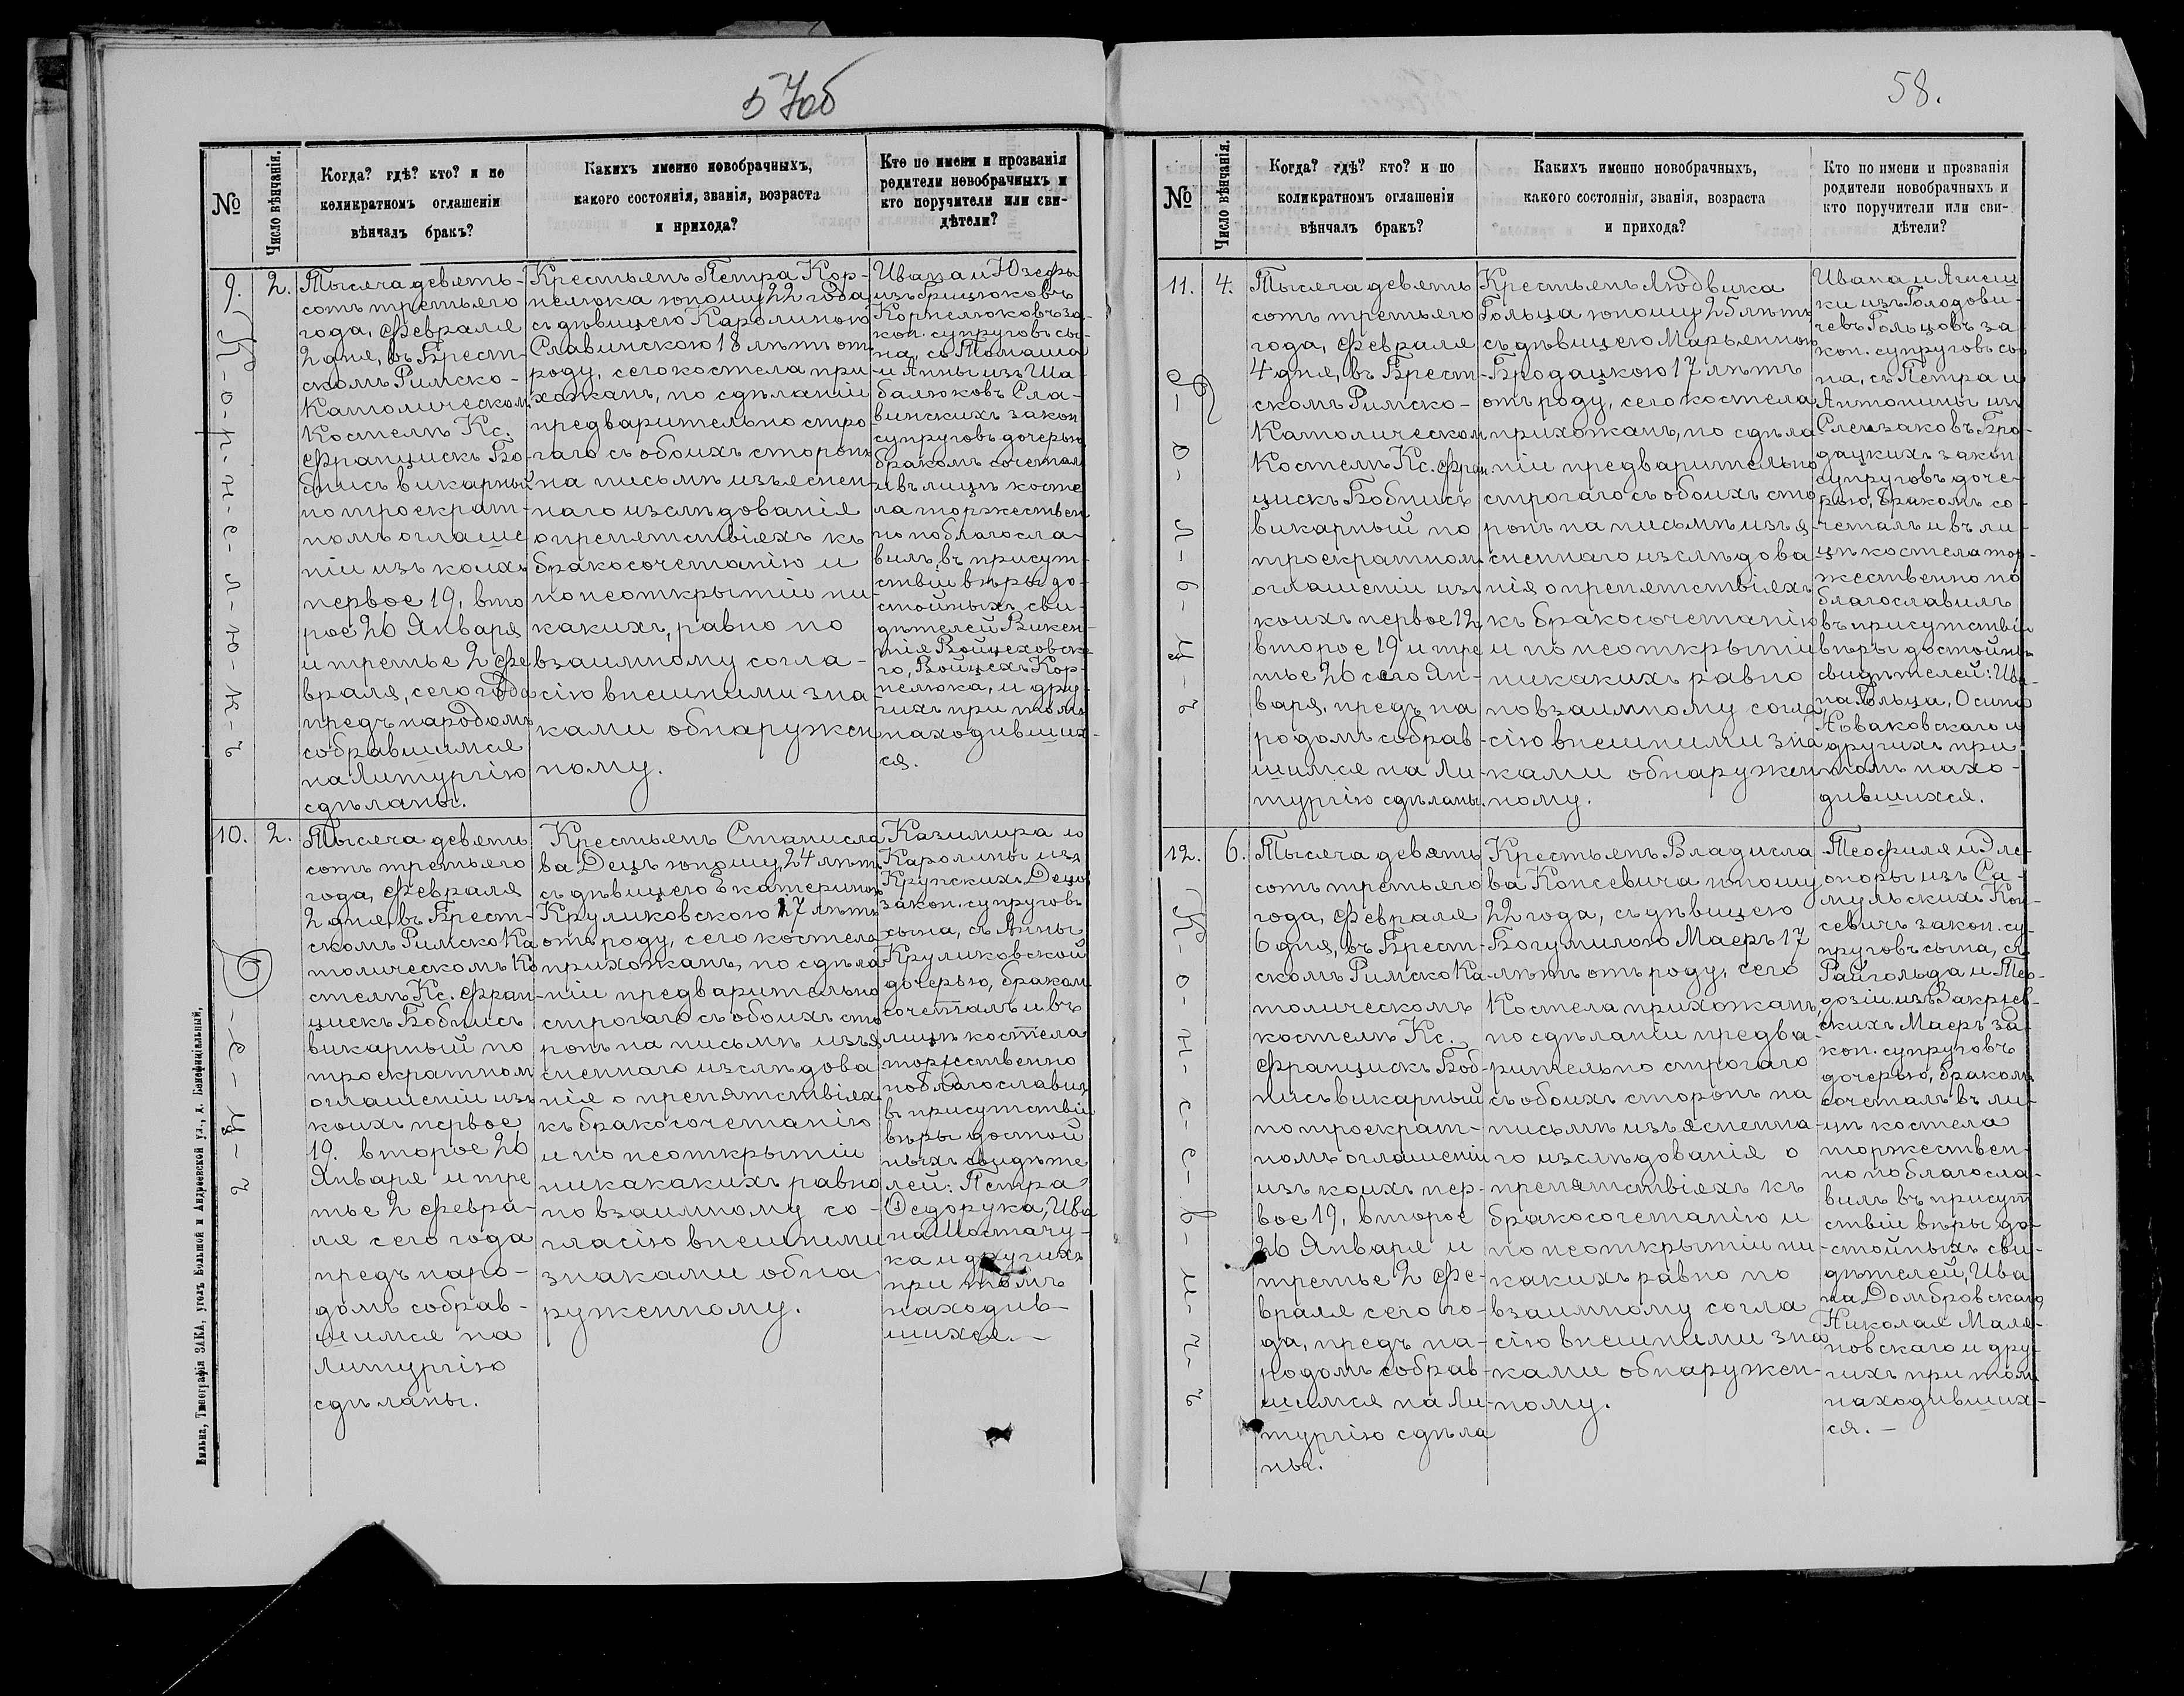 57об
№
Число вѣнчанія.
Когда? гдѣ? кто? и по
коликратномъ оглашеніи
вѣнчалъ бракъ?
Какихъ именно новобрачныхъ,
какого состоянія, званія, возраста
и прихода?
Кто по имени и прозванія
родители новобрачныхъ и
кто поручители или сви-
дѣтели?
9.
2.
Корнелюкъ
Тысяча девять-
сотъ третьяго
года, Февраля
2 дня, въ Брест-
скомъ Римско-
Католическом
Костелѣ Кс.
Францискъ Бо-
бнисъ викарный
по троекрат-
номъ оглаше
ніи изъ коихъ
первое 19, вто
рое 26 Января
и третье 2 Фе
враля, сего года
предъ народомъ
собравшимся
на Литургію
сдѣланы.
Крестьянъ Петра Кор-
нелюка юношу 22 года
съ дѣвицею Каролиною
Славинскою 18 лѣтъ отъ
роду, сего костела при
хожанъ, по сдѣланіи
предварительно стро
гаго съ обоихъ сторонъ
на письмѣ изъяснен-
наго изслѣдованія
о препятствіяхъ къ
бракосочетанію и
по неоткрытіи ни
какихъ, равно по
взаимному согла-
сію внешними зна
ками обнаружен
ному.
Ивана и Юзефы
изъ Грицюковъ
Корнелюковъ за-
кон. супруговъ сы-
на, съ Томаша
и Анны изъ Ша-
балюковъ Сла-
винскихъ закон
супруговъ дочерью
бракомъ сочетал
и въ лицѣ косте
ла торжествен
но поблагосла-
вилъ, въ присут-
ствіи вѣры до-
стойныхъ сви-
дѣтелей Викен-
тія Войцеховска
го, Войцеха Кор-
нелюка, и дру-
гихъ при томъ
находивших-
ся.
10.
2.
Децъ
Тысяча девять
сотъ третьяго
года, Февраля
2 дня, въ Брест-
скомъ Римско Ка
толическомъ Ко
стелѣ Кс. Фран-
цискъ Бобнисъ
викарный по
троекратном
оглашеніи изъ
коихъ первое
19. второе 26
Января и тре
тье 2 Февра-
ля сего года
предъ наро-
домъ собрав-
шимся на
Литургію
сдѣланы.
Крестьянъ Станисла
ва Децъ юношу, 24 лѣтъ
съ дѣвицею Екатериною
Круликовскою 17 лѣтъ
отъ роду, сего костела
прихожанъ, по сдѣла
ніи предварительно
строгаго съ обоихъ сто
ронъ на письмѣ изъя
сненнаго изслѣдова
нія о препятствіяхъ
къ бракосочетанію
и по неоткрытіи
никакакихъ равно
по взаимному со-
гласію внешними
знаками обна
руженному.
Казимира и
Каролины изъ
Крупскихъ Децъ
закон. супруговъ
сына, съ Анны
Круликовской
дочерью, браком
сочеталъ и въ
лицѣ костела
торжественно
поблагославилъ
въ присутствіи
вѣры достой
ныхъ свидѣте
лей: Петра
Федорука, Ива
на Шостачу-
ка и другихъ
при томъ
находив-
шихся.-
Вильна, Типографія ЗАКА, уголъ Большой и Андреевской ул., д. Бонифиціальный,
58.
№
Число вѣнчанія.
Когда? гдѣ? кто? и по
коликратномъ оглашеніи
вѣнчалъ бракъ?
Какихъ именно новобрачныхъ,
какого состоянія, званія, возраста
и прихода?
Кто по имени и прозванія
родители новобрачныхъ и
кто поручители или сви-
дѣтели?
11.
4.
Гольцъ
Тысяча девять
сотъ третьяго
года, Февраля
4 дня, въ Брест-
скомъ Римско-
Католическом
Костелѣ Кс. Фран
цискъ Бобнисъ
викарный по
троекратном
оглашеніи изъ
коихъ первое 12,
второе 19 и тре
тье 26 сего Ян-
варя, предъ на
родомъ собрав
шимся на Ли-
тургію сдѣланы.
Крестьянъ Людвика
Гольца юношу 25 лѣтъ
съ дѣвицею Марьянною
Бродацкою 17 лѣтъ
отъ роду, сего костела
прихожанъ, по сдѣла
ніи предварительно
строгаго съ обоихъ сто
ронъ на письмѣ изъя-
сненнаго изслѣдова
нія о препятствіяхъ
къ бракосочетанію
и по неоткрытіи
никакихъ равно
по взаимному согла
сію внешними зна
ками обнаружен
ному.
Ивана и Агнеш
ки изъ Голодови-
чевъ Гольцовъ за
кон. супруговъ сы-
на, съ Петра и
Антонины изъ
Слензаковъ Бро-
дацкихъ закон
супруговъ доче-
рью, бракомъ со-
четалъ и въ ли-
цѣ костела тор-
жественно по
благославилъ
въ присутствіи
вѣры достойнъ
свидѣтелей: Ива-
на Гольца, Осипа
Новаковскаго и
другихъ при
томъ нахо-
дившихся.
12.
6.
Консевичъ
Тысяча девять
сотъ третьяго
года, Февраля
6 дня, въ Брест-
скомъ Римско Ка-
толическомъ
костелѣ Кс.
Францискъ Боб-
нисъ викарный
по троекрат-
номъ оглашеніи
изъ коихъ пер-
вое 19, второе
26 Января и
третье 2 Фе-
враля сего го-
да, предъ на-
родомъ собрав-
шимся на Ли-
тургію сдѣла
ны.
Крестьянъ Владисла
ва Консевича юношу
22 года, съ дѣвицею
Богумилою Маеръ 17
лѣтъ отъ роду, сего
Костела прихожанъ,
по сдѣланіи предва-
рительно строгаго
съ обоихъ сторонъ на
письмѣ изъясненна-
го изслѣдованія о
препятствіяхъ къ
бракосочетанію и
по неоткрытіи ни-
какихъ равно по
взаимному согла
сію внешними зна
ками обнаружен-
ному.
Теофиля и Эле-
оноры изъ Са-
мульскихъ Кон-
севичъ закон. су-
пруговъ сына, съ
Райгольда и Тео-
дозіи изъ Закржев-
скихъ Маеръ за-
кон. супруговъ
дочерью, бракомъ
сочеталъ въ ли-
цѣ костела
торжествен-
но поблагосла-
вилъ въ присут
ствіи вѣры до-
стойныхъ сви-
дѣтелей, Ива
на Домбровскаго,
Николая Маля-
новскаго и дру-
гихъ при том
находивших-
ся.-